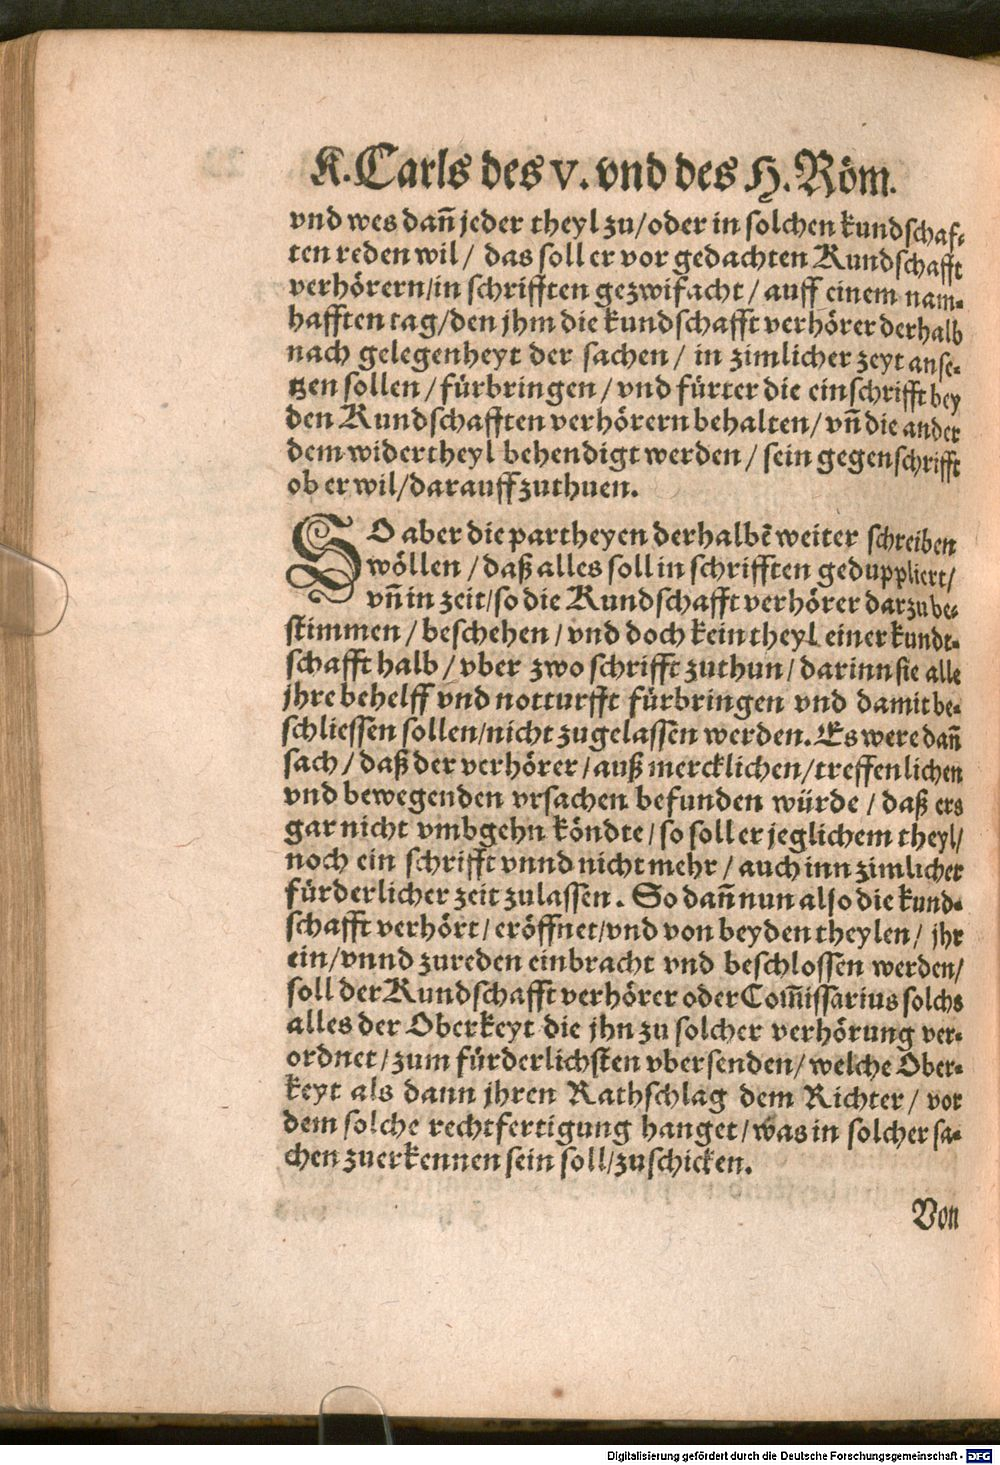 K. Carls des V. vnd des H. Röm.
vnd wes dañ jeder theyl zu/oder in solchen kundschaf-
ten reden wil/ das soll er vor gedachten Kundschafft
verhörern/in schrifften gezwifacht/ auff einem nam-
hafften tag/den jhm die kundschafft verhörer derhalb
nach gelegenheyt der sachen/ in zimlicher zeyt anse-
tzen sollen/fürbringen/vnd fürter die ein schrifft bey
den Kundschafften verhörern behalten/vñ die ander
dem widertheyl behendigt werden/sein gegenschrifft
ob er wil/darauff zuthuen.
SO aber die partheyen derhalbẽ weiter schreiben
wöllen/daß alles soll in schrifften geduppliert/
vñ in zeit/so die Kundschafft verhörer darzu be-
stimmen/beschehen/vnd doch kein theyl einer kundt-
schafft halb/vber zwo schrifft zuthun/darinn sie alle
jhre behelff vnd notturfft fürbringen vnd damit be-
schliessen sollen/nicht zugelassen werden. Es were dañ
sach/daß der verhörer/auß mercklichen/treffenlichen
vnd bewegenden vrsachen befunden würde/daß ers
gar nicht vmbgehn köndte/so soll er jeglichem theyl/
noch ein schrifft vnnd nicht mehr/auch inn zimlicher
fürderlicher zeit zulassen. So dañ nun also die kund-
schafft verhört/eröffnet/vnd von beyden theylen/ jhr
ein/vnnd zureden einbracht vnd beschlossen werden/
soll der Kundschafft verhörer oder Com̃issarius solchs
alles der Oberkeyt die jhn zu solcher verhörung ver-
ordnet/zum fürderlichsten vbersenden/welche Ober-
keyt als dann jhren Rathschlag dem Richter/ vor
dem solche rechtfertigung hanget/was in solcher sa-
chen zuerkennen sein soll/zuschicken.
Von
Digitalisierung gefördert durch die Deutsche Forschungsgemeinschaft - DFG